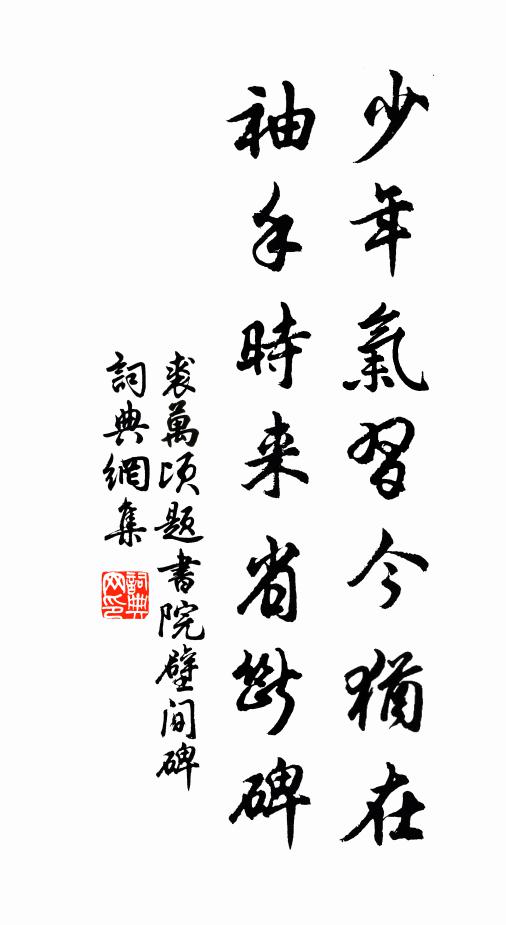 少年氣習今猶在
袖手時来省斷碑
裘萬頃题書院壁间碑
詞典網集
詞典网印